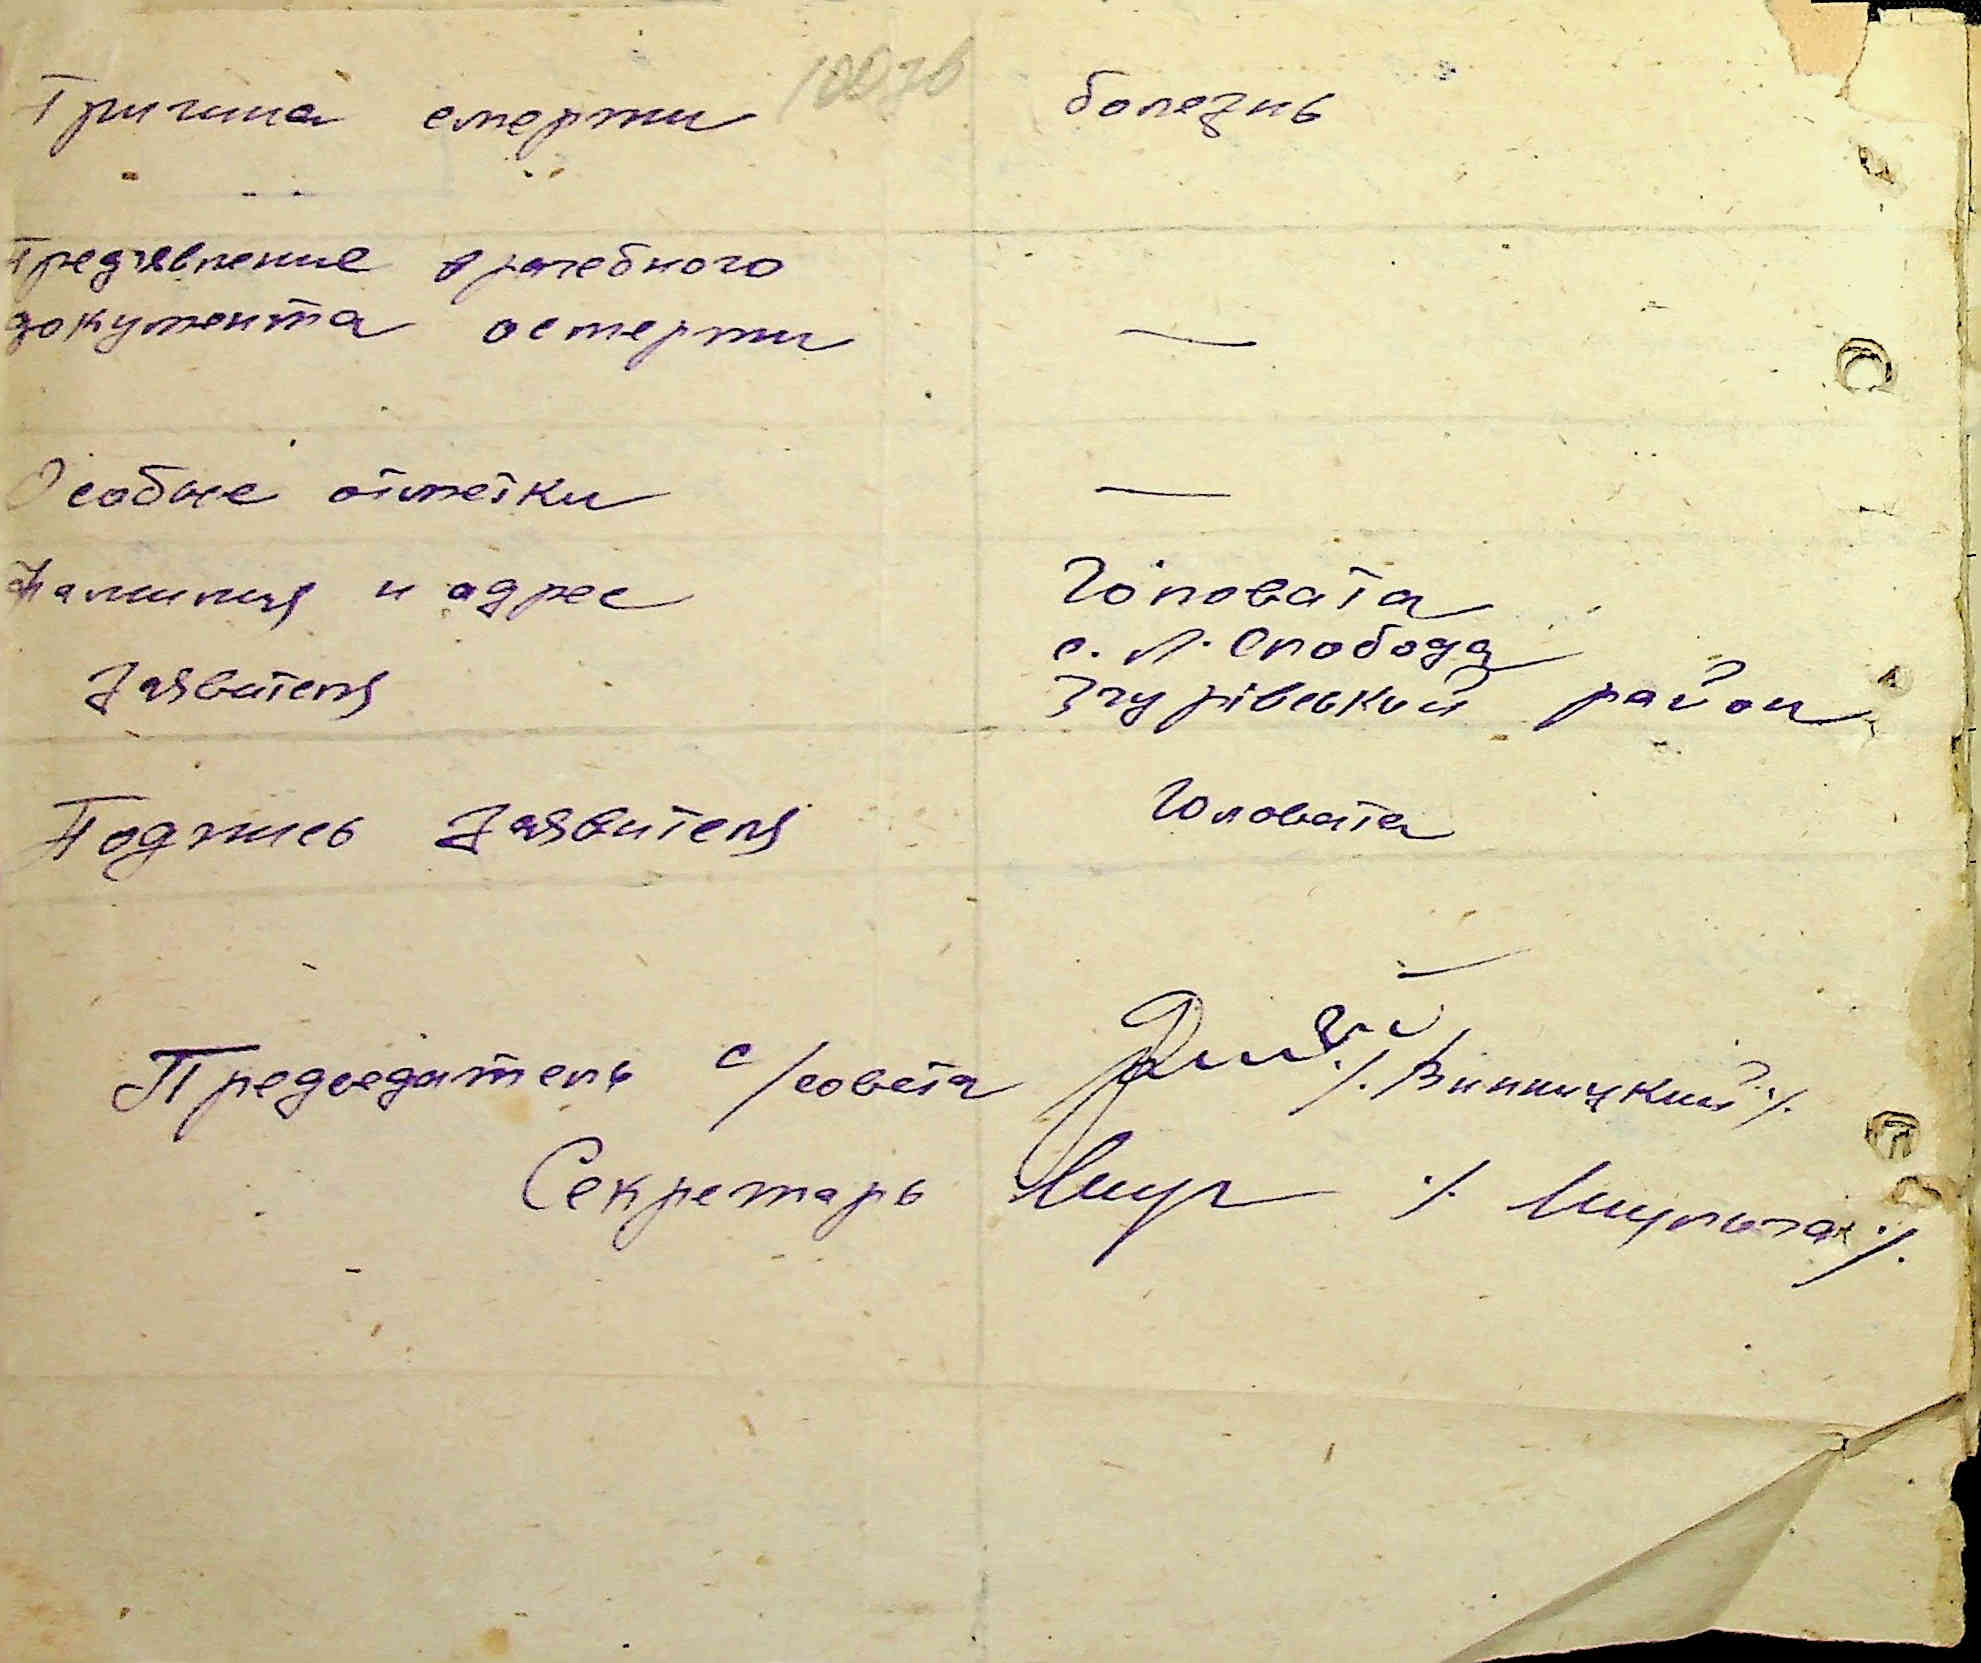 Причина смерти болезнь
Предявление врачебного
документа осмерти —
Особые отметки —
Фамилия и адрес Головата
с. Л. Слобода
Заявителя Згурівський район
Подпись Заявителя Головата
Председатель с/совета /Винницкий/
Секретарь